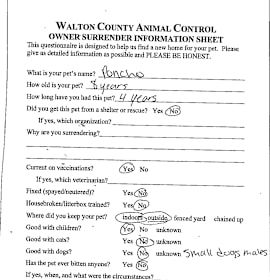 WALTON COUNTY ANIMAL CONTROL
OWNER SURRENDER INFORMATION SHEET
This questionnaire is designed to help us find a new home for your pet. Please
give us detailed information as possible and PLEASE BE HONEST.
What is your pet's name? Poncho
How old is your pet? 8 years
How long have you had this pet? 4 years
Did you get this pet from a shelter or rescue? Yes No
If yes, which organization?
Why are you surrendering?
Current on vaccinations? Yes No
If yes, which veterinarian?
Fixed (spayed/neutered)? Yes No
Housebroken/litterbox trained? Yes No
Where did you keep your pet? indoors outside fenced yard chained up
Good with children? Yes No unknown
Good with cats? Yes No unknown
Good with dogs? Yes No unknown Small dogs males
Has the pet ever bitten anyone? Yes No
If yes, when, and what were the circumstances?